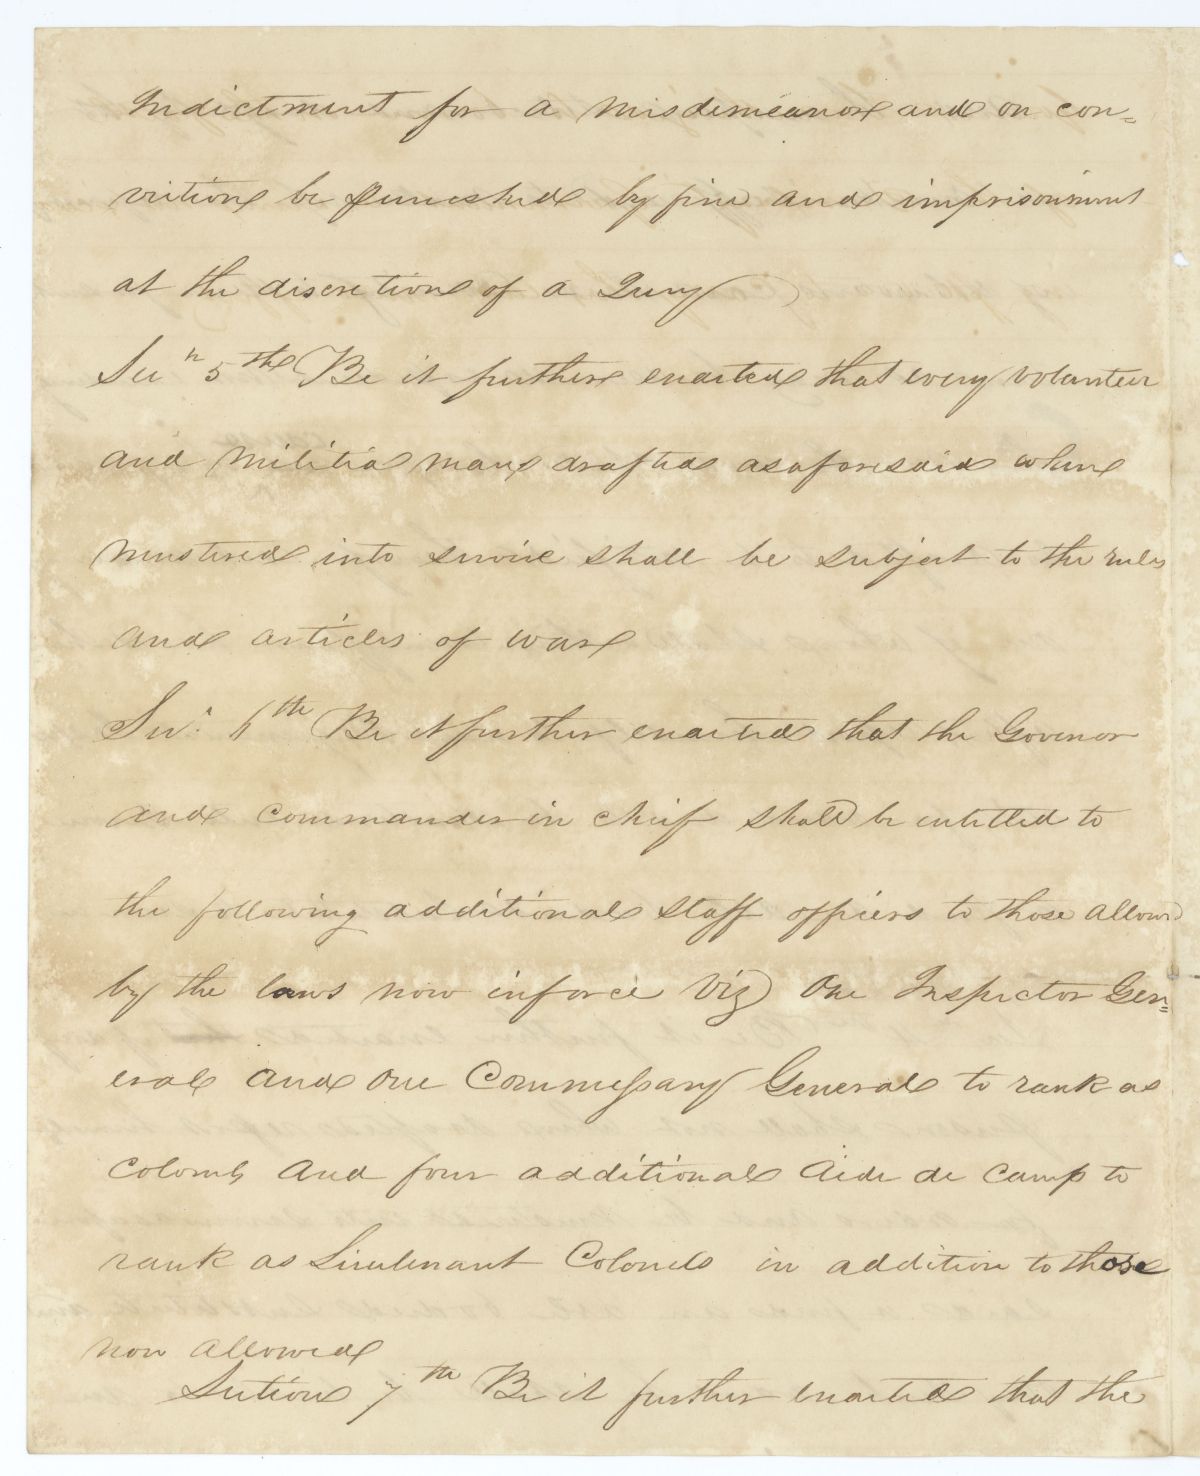 Indictment for a misdemeanor and on con=
viction be punished by fine and imprisonment
at the discretion of a Jury
Secn 5th Be it further enacted that every volunteer
and militia man drafted as aforesaid when
mustered into service shall be subject to the rules
and articles of war
Secn 6th Be it further enacted that the Govenor
and commander in chief shall be entitled to
the following additional staff officers to those allowed
by the laws now inforce Viz One Inspector Gen=
eral and one Commissary General to rank as
Colonels and four additional Aide de Camp to
rank as Lieutenant Colonels in addition to those
now allowed
Section 7th Be it further enacted that the